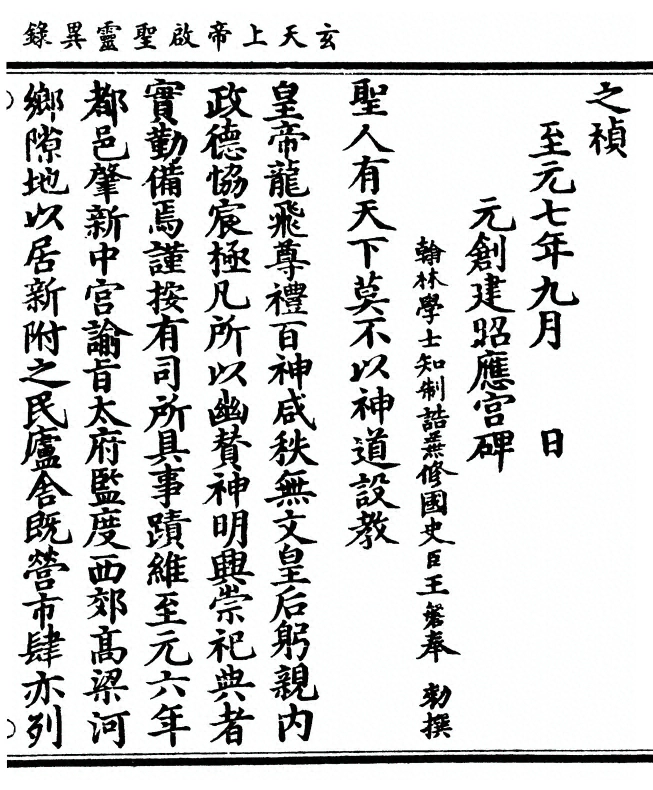 玄天上帝啟聖靈異錄
之禎
至元七年九月　日
元創建昭應宮碑
翰林學士知制誥兼修國史臣王磐奉　勅撰
聖人有天下莫不以神道設教
皇帝龍飛尊禮百神咸秩無文皇后躬親內
政德恊宸極凡所以幽賛神明興崇祀典者
實勤備焉謹按有司所具事蹟維至元六年
都邑肇新中宮諭旨太府監度西郊高梁河
鄉隙地以居新附之民廬舍既營市肆亦列